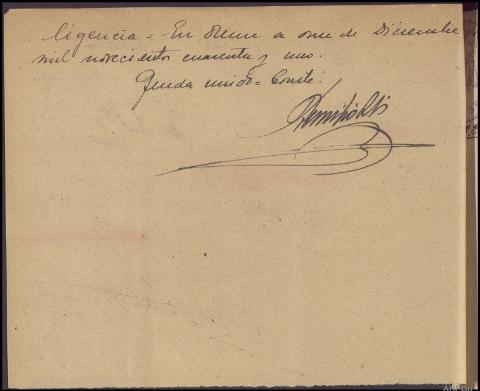 ligencia = En Orense a once de Diciembre
mil novecientos cuarenta y uno.
Queda unido = Consté.